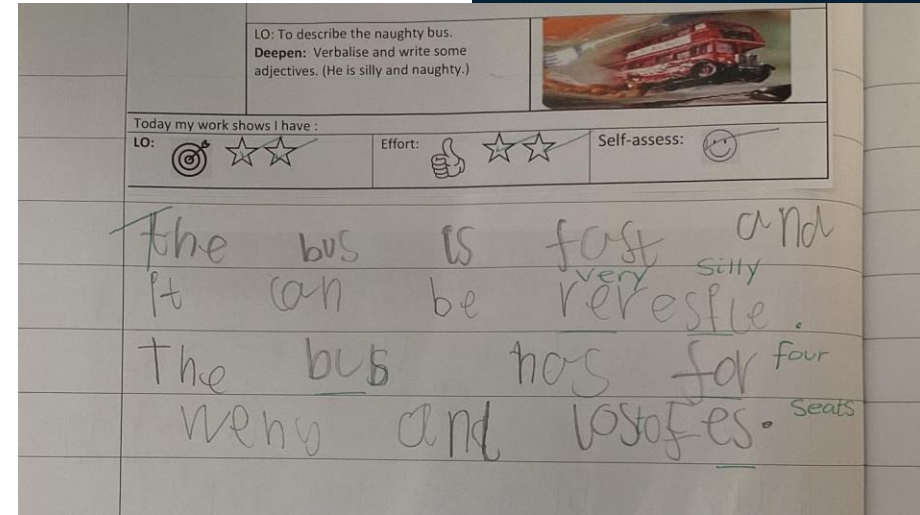 LO: To describe the naughty bus.
Deepen: Verbalise and write some
adjectives. (He is silly and naughty.)
Today my work shows I have :
LO:
Effort:
Self-assess:
The bus is fast and
very silly
it can be reresfle.
The bus has for four
weny and lostof es. seats